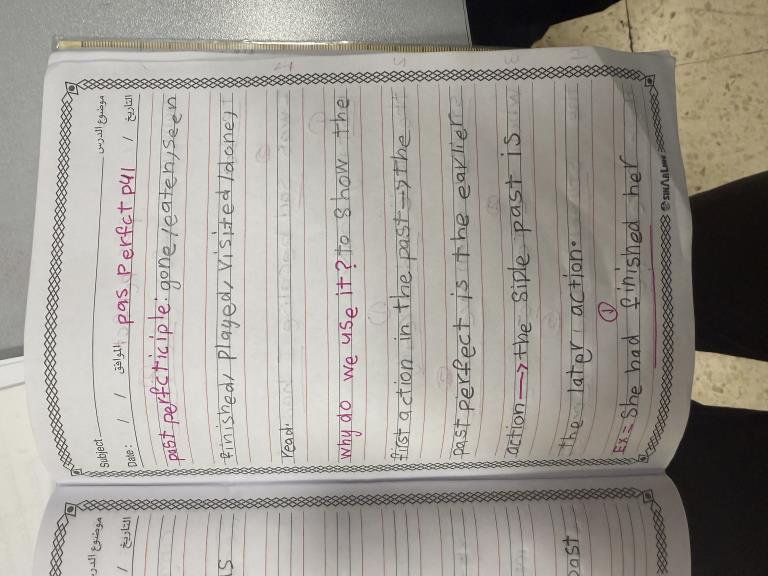 Subject موضوع الدرس
Date: / / الموافق / / التاريخ
pas perfct p41
past perfcticiple: gone/eaten/seen
finished/played/visited/done/
read.
why do we use it? to show the
first action in the past → the
past perfect is the earlier
action → the siple past is
the later action.
①
EX = She had finished her
SINARLINE
موضوع الدرس
/ التاريخ
is
past